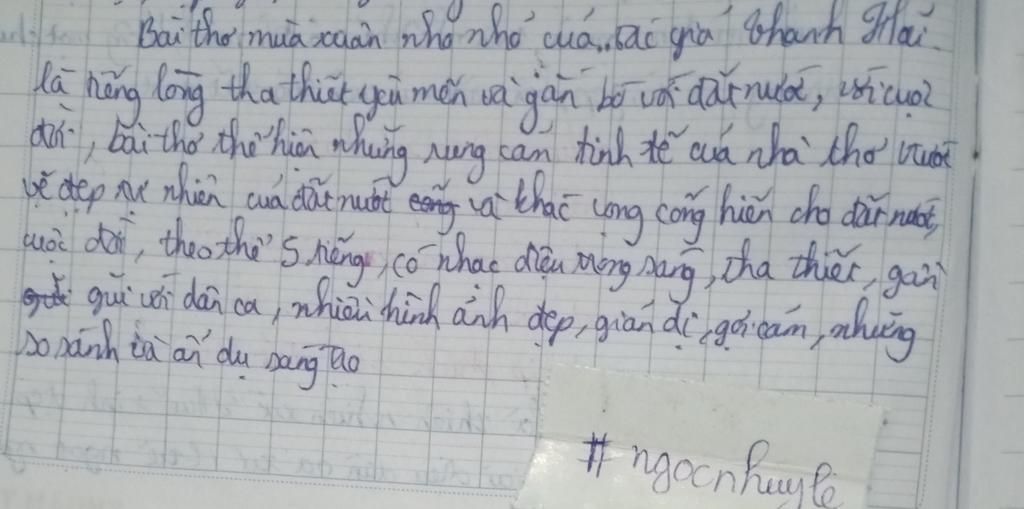 Bài thơ mùa xuân nho nhỏ của tác giả Thanh Hải
là tiếng lòng tha thiết yêu mến và gắn bó với đất nước, với cuộc
đời, bài thơ thể hiện những rung cảm tinh tế của nhà thơ trước
vẻ đẹp tự nhiên của đất nước và khác vọng cống hiến cho đất nước,
cuộc đời, theo thể 5 tiếng, có nhạc điệu trong sáng, tha thiết, gần
gũi với dân ca, nhiều hình ảnh đẹp, giản dị, gợi cảm, những
so sánh và ẩn dụ sáng tạo
# ngocnhuyle